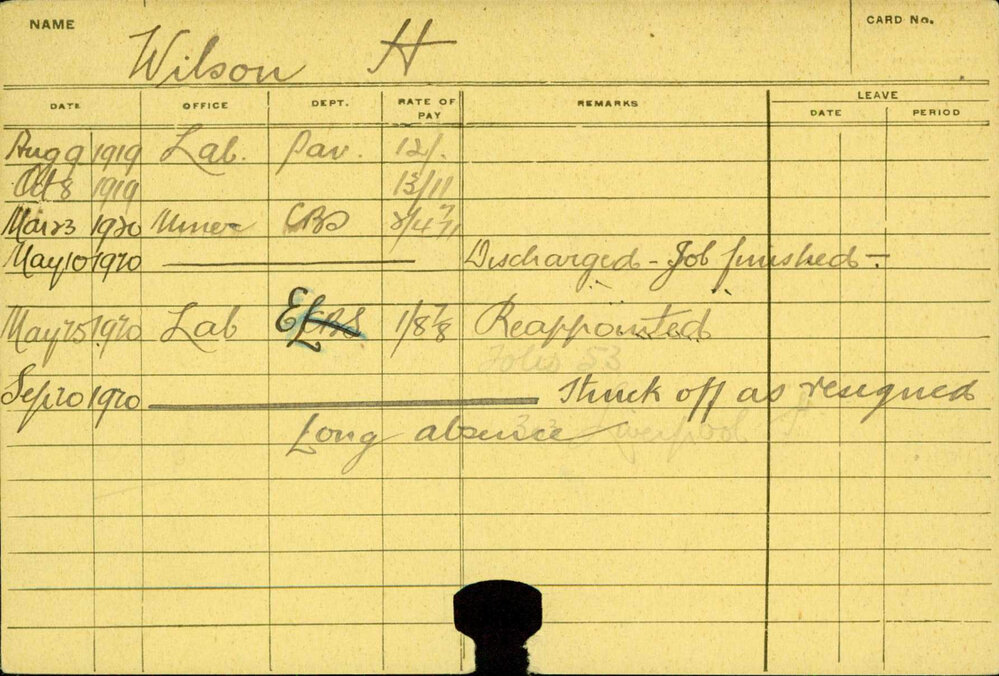 NAME CARD No.
Wilson H
DATE OFFICE DEPT. RATE OF PAY REMARKS LEAVE
DATE PERIOD
Aug 9 1919 Lab. Pav. 12/.
Oct 8 1919 13/11
Mar 23 1920 CBS
May 10 1920 Discharged - Job finished -
May 25 1920 Lab EL CBS 1/8 7/8 Reappointed
53
Sep 20 1920 Struck off as resigned
Long absence
Liverpool St